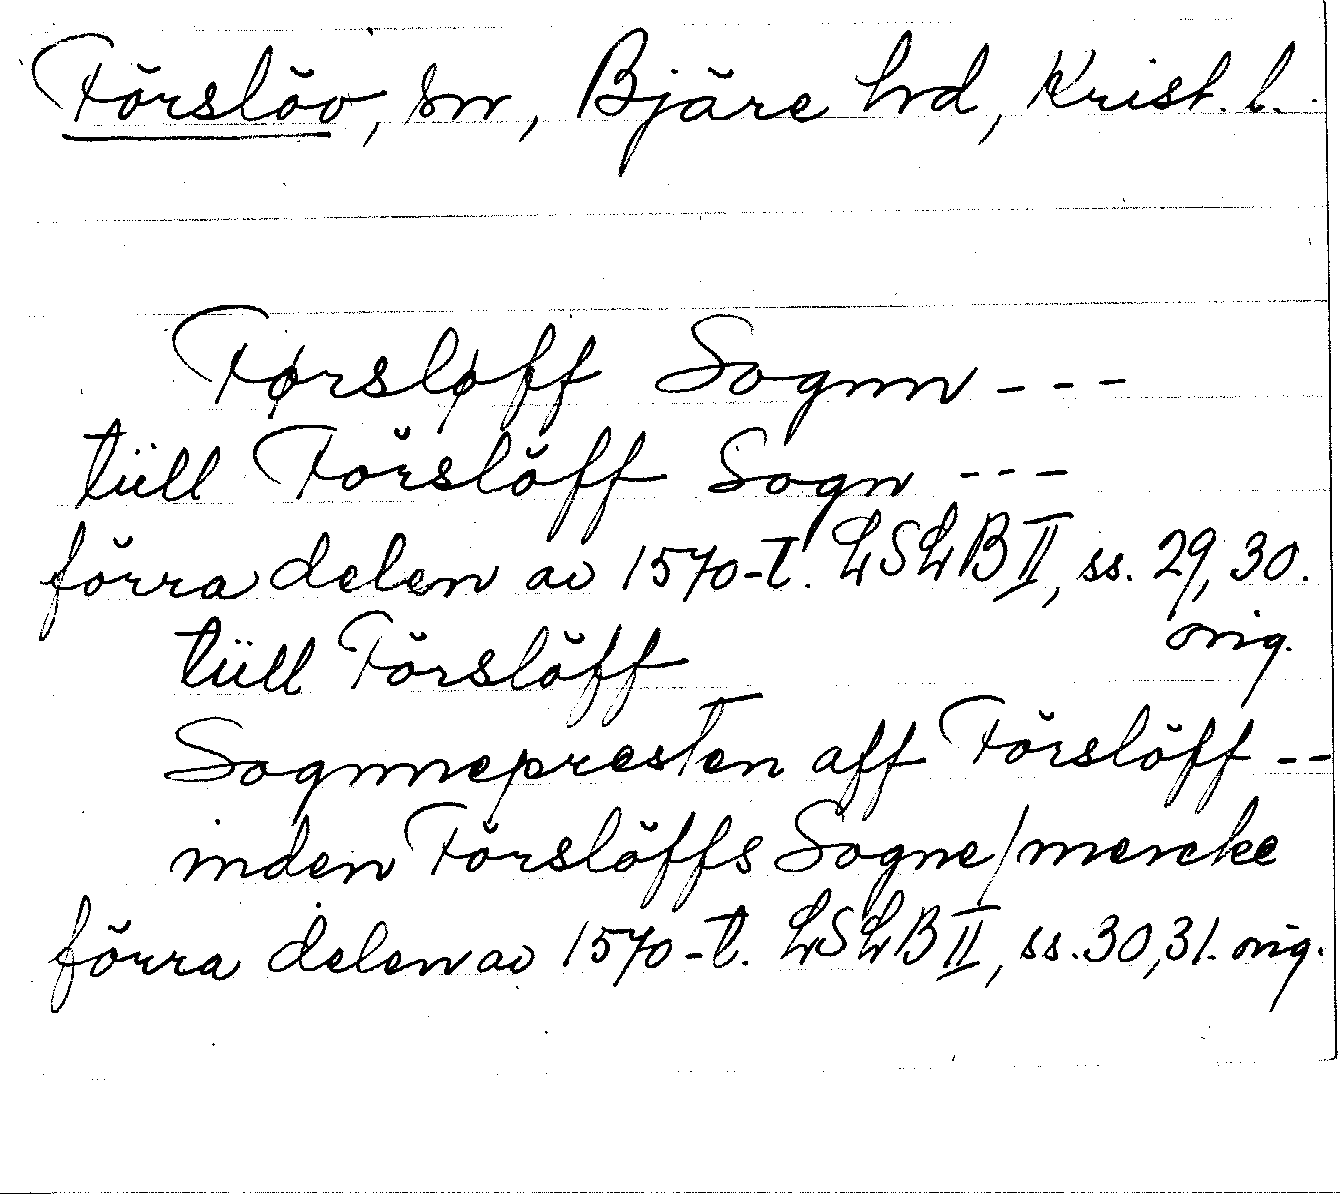 Förslöv, sn, Bjäre hd, Krist. l.
Førsløff Sognn - - -
tüll Förslöff Sogn - - -
förra delen av 1570-t. LSLB II, ss. 29, 30.
orig.
tüll Förslöff
Sognnepresten aff Förslöff - -
inden Förslöffs Sogne/mercke
förra delen av 1570-t. LSLB II, ss. 30, 31. orig.